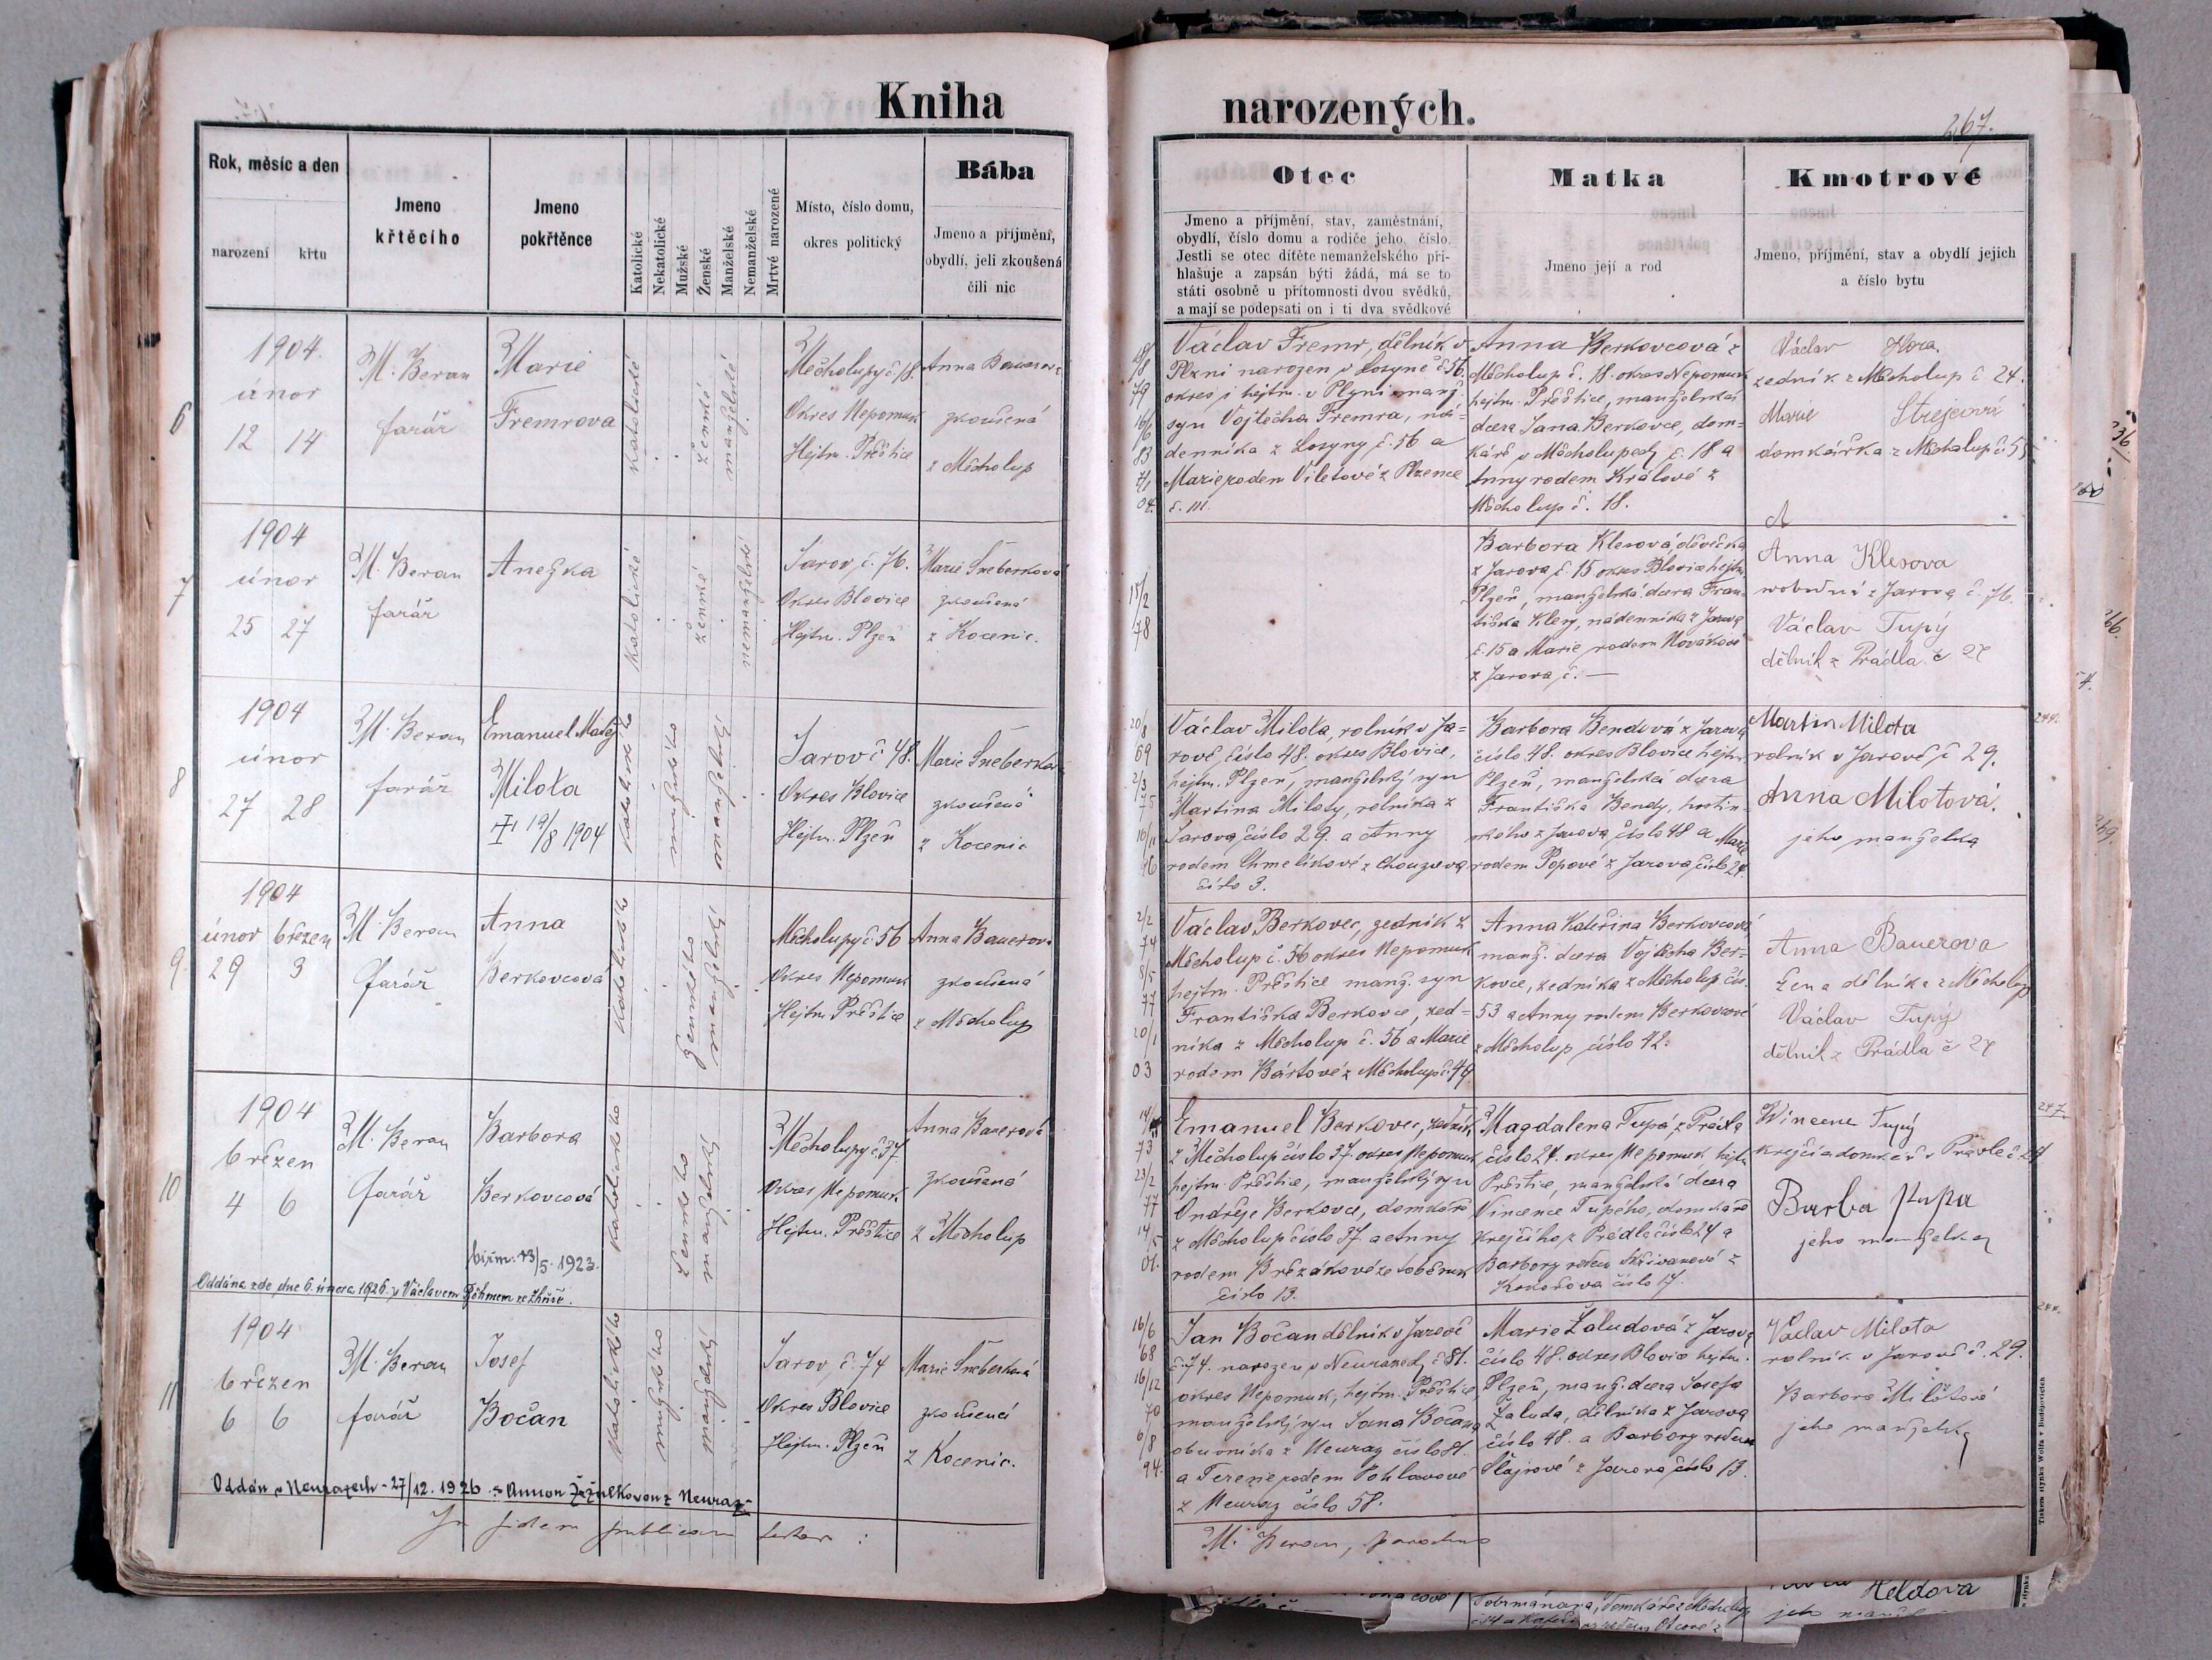 Kniha
narozených.
267.
Rok, měsíc a den
narození
křtu
Jmeno
křtěcího
Jmeno
pokřtěnce
Katolické
Nekatolické
Mužské
Ženské
Manželské
Nemanželské
Mrtvě narozené
Místo, číslo domu,
okres politický
Bába
Jmeno a příjmění,
obydlí, jeli zkoušená
čili nic
Otec
Jmeno a příjmění, stav, zaměstnání,
obydlí, číslo domu a rodiče jeho, číslo.
Jestli se otec dítěte nemanželského při-
hlašuje a zapsán býti žádá, má se to
státi osobně u přítomnosti dvou svědků,
a mají se podepsati on i ti dva svědkové
Matka
Jmeno její a rod
Kmotrové
Jmeno, příjmění, stav a obydlí jejich
a číslo bytu
6
1904.
únor
12 14
M. Beran
farář
Marie
Fremrova
katolické
ženské
manželské
Měcholupy č. 18.
Okres Nepomuk
Hejtm. Přeštice
Anna Bauerova
zkoušená
z Měcholup
Václav Fremr, dělník v
Plzni narozen v Losyné č 56.
okres i hejtm. v Plzni manž.
syn Vojtěcha Fremra, ná-
denníka z Losyny č. 56 a
Marie rodem Viletové z Plzence
č. 111.
Anna Berkovcová z
Měcholup č. 18. okres Nepomuk
hejtm. Přeštice, manželská
dcera Jana Berkovce, dom-
káře v Měcholupech č. 18 a
Anny rodem Králové z
Měcholup č. 18.
Václav Hora.
zedník z Měcholup č 24.
Marie
domkářka z Měcholup č 55
7
1904
únor
25 27
M. Beran
farář
Anežka
katolické
ženské
nemanželské
Jarov, č. 76.
Okres Blovice
Hejtm. Plzeň
Marie Šneberková
zkoušená
z Kocenic.
15/2
78
Barbora Klesová, děvečka
z Jarova č. 15 okres Blovice hejtm.
Plzeň, manželská dcera Fran-
tiška Klesy, nádenníka z Jarova
č. 15 a Marie rodem Novákové
z Jarova, č. —
Anna Klesova
z Jarova č. 76.
Václav Tupý
dělník z Prádla č 27
8
1904
únor
27 28
M. Beran
farář
Emanuel Matěj
Milota
19/8 1904
katolického
mužského
manželský
Jarov č 48.
Okres Blovice
Hejtm. Plzeň
Marie Šneberková
zkoušená
z Kocenic
Václav Milota, rolník v Ja-
rově číslo 48. okres Blovice,
hejtm. Plzeň, manželský syn
Martina Miloty, rolníka z
Jarova, číslo 29. a Anny
rodem Chmelíkové z Chouzova
číslo 3.
Barbora Bendová z Jarova
číslo 48. okres Blovice hejtm.
Plzeň, manželská dcera
Františka Bendy, hostin-
ského z Jarova, číslo 48 a Marie
rodem Popové z Jarova, číslo 24.
Martin Milota
rolník v Jarově č 29.
Anna Milotová.
jeho manželka
9
1904
únor březen
29 3
M. Beran
farář
Anna
Berkovcová
katolického
ženského
manželský
Měcholupy č. 56
Okres Nepomuk
Hejtm. Přeštice
Anna Bauerová
zkoušená
z Měcholup
Václav Berkovec, zedník z
Měcholup č. 56 okres Nepomuk
hejtm. Přeštice manž. syn
Františka Berkovce, zed-
níka z Měcholup č. 56 a Marie
rodem Bártové z Měcholup č. 49.
Anna Kateřina Berkovcová
manž. dcera Vojtěcha Ber-
kovce, zedníka z Měcholup čís.
53 a Anny rodem Berkovcové
z Měcholup číslo 42.
Anna Bauerova
žena dělníka z Měcholup
Václav Tupý
dělník z Prádla č 27
10
1904
březen
4 6
M. Beran
farář
Barbora
Berkovcová
biřm. 13/5. 1923.
Oddána zde dne 6. února 1926. s Václavem Böhmem ze Lhůše.
katolického
ženského
manželský
Měcholupy č. 37
Okres Nepomuk
Hejtm. Přeštice
Anna Bauerová
zkoušená
z Měcholup
Emanuel Berkovec, zedník
z Měcholup číslo 37. okres Nepomuk
hejtm. Přeštice, manželský syn
Ondřeje Berkovce, domkáře
z Měcholup číslo 37 a Anny
rodem Brezákové ze
číslo 13.
Magdalena Tupá z Prádla
číslo 24. okres Nepomuk hejtm.
Přeštice, manželská dcera
Vincence Tupého, domkáře
krejčího z Prádla číslo 24 a
Barbory rodem Skřivanové z
číslo 17.
Wincenc Tupý
krejčí a domkář v Prádle č. 24
Barba Tupa
jeho manželka
247.
11
1904
březen
6 6
M. Beran
farář
Josef
Bočan
katolického
mužského
manželský
Jarov, č. 74
Okres Blovice
Hejtm. Plzeň
Marie Šneberková
zkoušená
z Kocenic.
Oddán v Neurazech - 27/12. 1926 s Annou Žižulkovou z Neuraz.
Jan Bočan dělník v Jarově
č. 74. narozen v Neurazech č 81.
okres Nepomuk, hejtm. Přeštice,
manželský syn Jana Bočana,
obuvníka z Neuraz číslo 81.
a Terezie rodem Pohlavové
z Neuraz číslo 58.
Marie Žaludová z Jarova
číslo 48. okres Blovice hejtm.
Plzeň, manž. dcera Josefa
Žaluda, dělníka z Jarova
číslo 48. a Barbory rodem
Šlajsové z Jarova, číslo 13.
Václav Milota
rolník v Jarově č. 29.
Barbora Milotová
jeho manželka
In fidem publicam testor:
M. Beran, parochus
Tiskem tiskař Wolfa v Budějovicích
Heldova